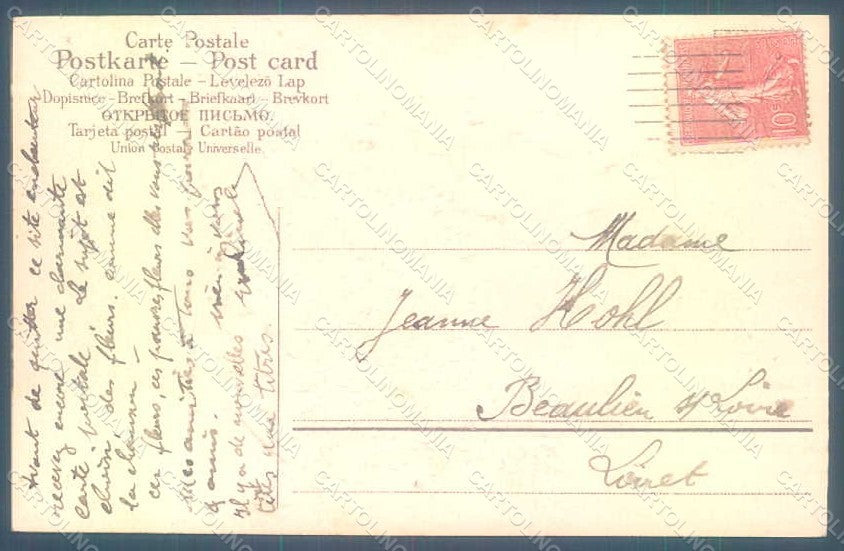 Carte Postale
Postkarte – Post card
Cartolina Postale – Levelező Lap
Dopisnice – Brefkort – Briefkaart – Brevkort
ОТКРЫТОЕ ПИСЬМО.
Tarjeta postal – Cartão postal
Union Postale Universelle.
10
Madame
Jeanne Hohl
Beaulieu s/Loire
Loiret
avant de quitter ce site enchanteur
recevez encore une charmante
carte postale le sujet est
choisi des fleurs. comme dit
la chanson –
ces fleurs, ces fleurs des
Mes amitiés à tous vos
amis.
Il y a de
titres.
CARTOLINOMANIA